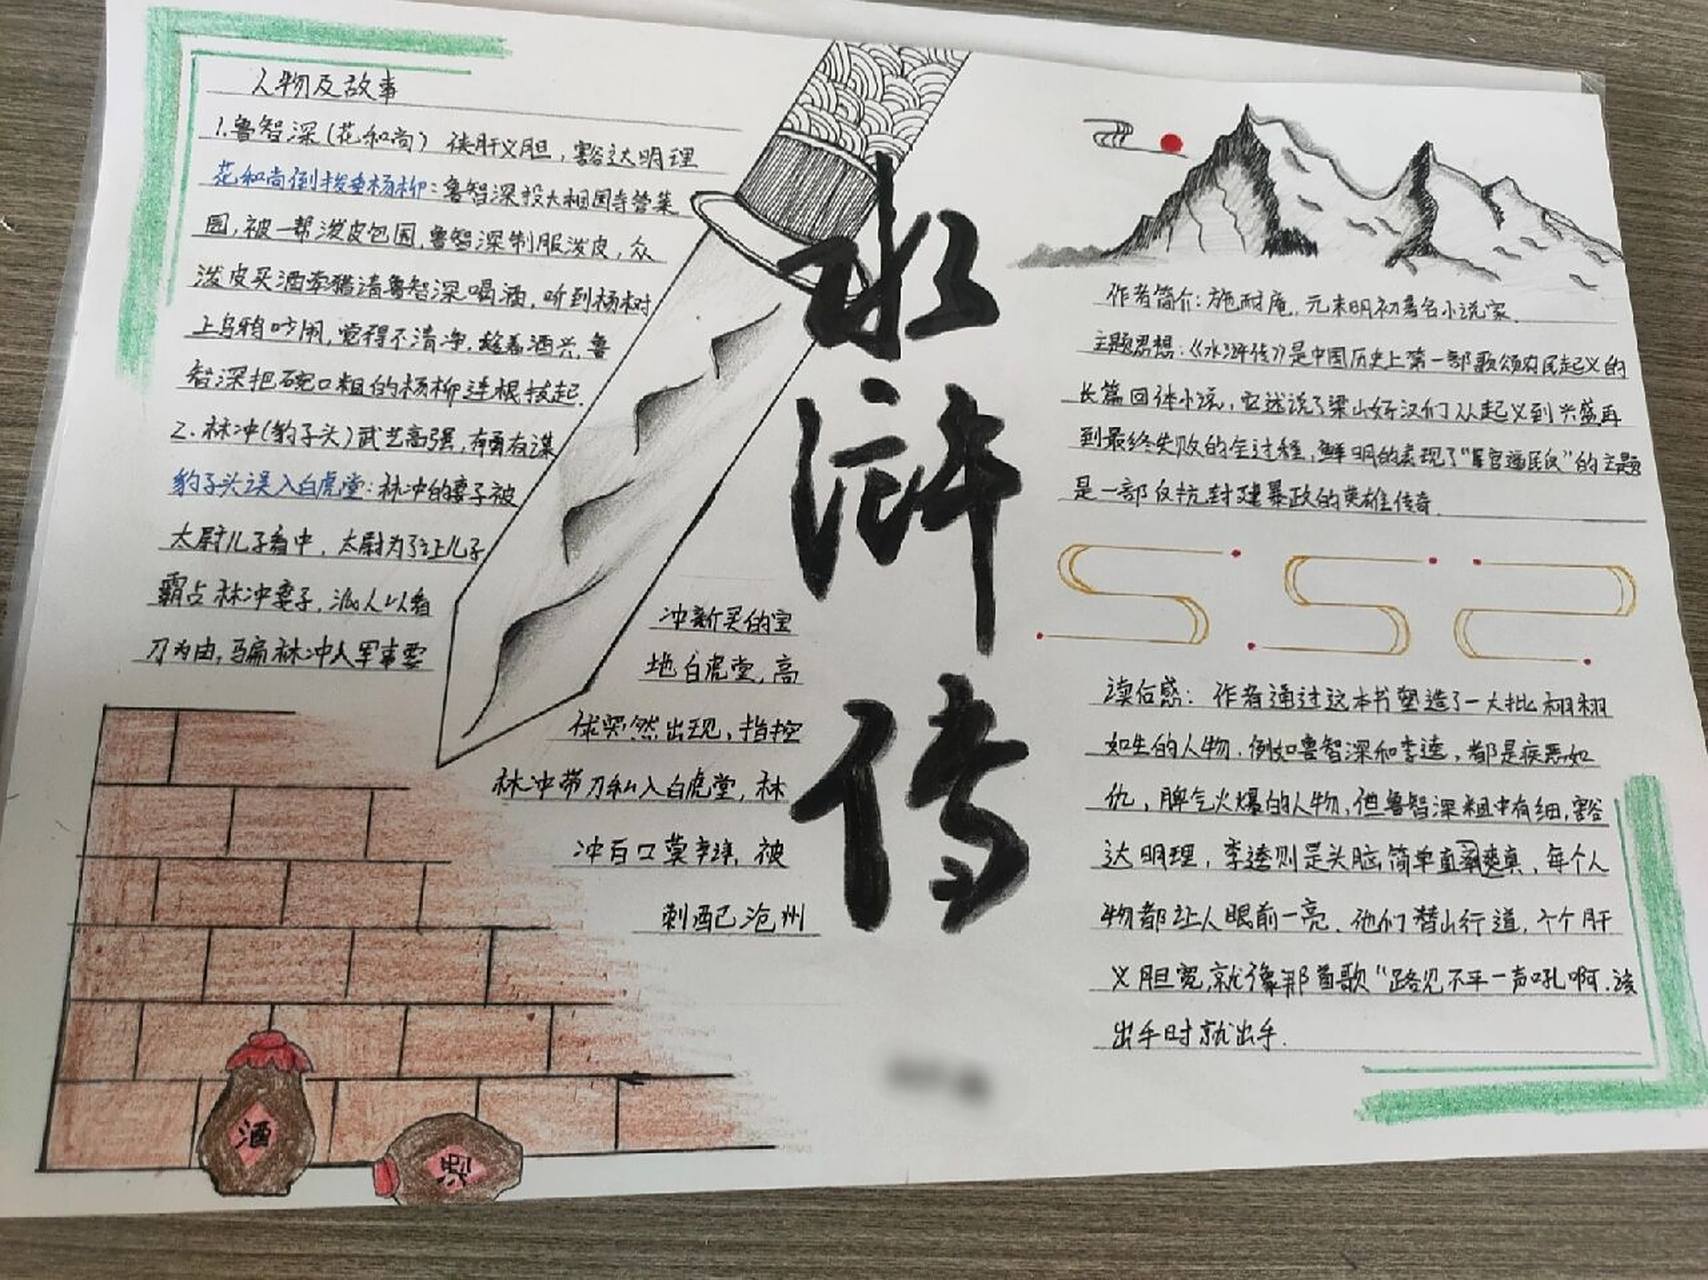 人物及故事
1.鲁智深（花和尚）侠肝义胆，豁达明理
花和尚倒拔垂杨柳：鲁智深投大相国寺管菜
园，被一帮泼皮包围，鲁智深制服泼皮，众
泼皮买酒牵猪请鲁智深喝酒，听到杨树
上乌鸦吵闹，觉得不清净，趁着酒兴，鲁
智深把碗口粗的杨柳连根拔起.
2.林冲（豹子头）武艺高强，有勇有谋
豹子头误入白虎堂：林冲的妻子被
太尉儿子看中，太尉为了让儿子
霸占林冲妻子，派人以看
刀为由，骗林冲入军事要
冲新买的宝
地白虎堂，高
俅突然出现，指控
林冲带刀私入白虎堂，林
冲百口莫辩，被
刺配沧州
水浒传
作者简介：施耐庵，元末明初著名小说家.
主题思想：《水浒传》是中国历史上第一部歌颂农民起义的
长篇回体小说，它述说了梁山好汉们从起义到兴盛再
到最终失败的全过程，鲜明的表现了“官逼民反”的主题
是一部反抗封建暴政的英雄传奇.
读后感：作者通过这本书塑造了一大批栩栩
如生的人物，例如鲁智深和李逵，都是疾恶如
仇，脾气火爆的人物，但鲁智深粗中有细，豁
达明理，李逵则是头脑简单直率爽真，每个人
物都让人眼前一亮，他们替山行道，个个肝
义胆宽，就像那首歌“路见不平一声吼啊，该
出手时就出手.
酒
酒